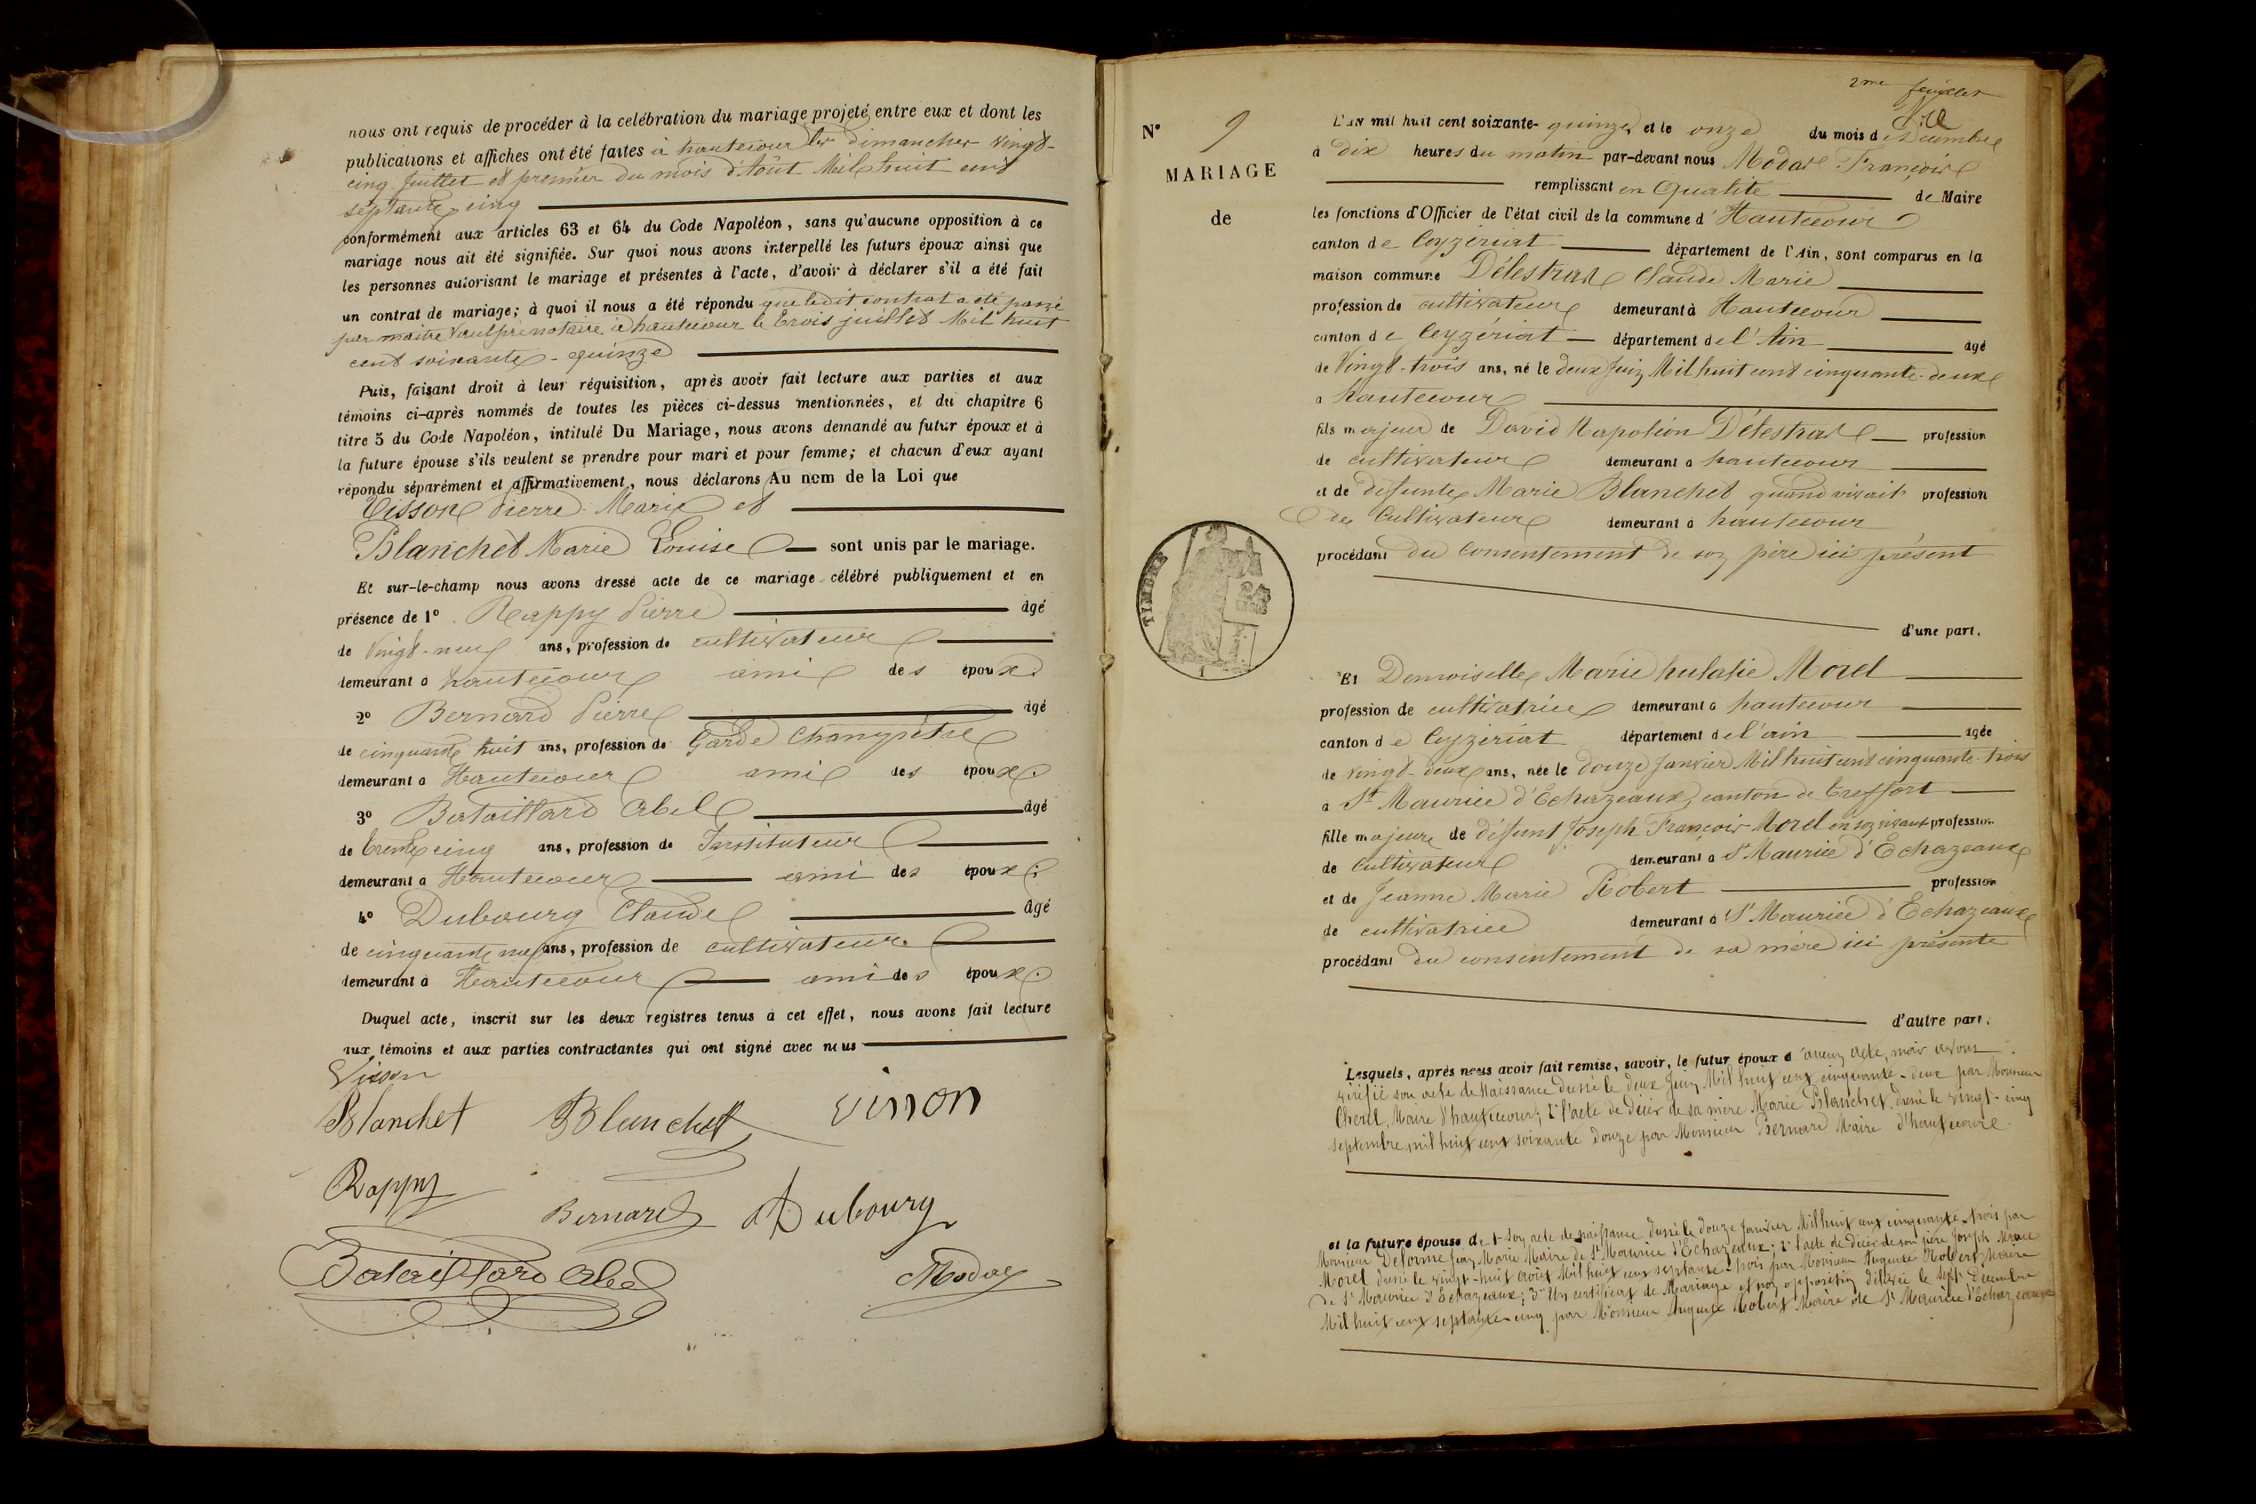 nous ont requis de procéder à la celébration du mariage projeté entre eux et dont les
publications et affiches ont été faites à hautecour les dimanches vingt-
cinq Juillet et premier du mois d'Août Mil huit cent
septante cinq
conformément aux articles 63 et 64 du Code Napoléon, sans qu'aucune opposition à ce
mariage nous ait été signifiée. Sur quoi nous avons interpellé les futurs époux ainsi que
les personnes autorisant le mariage et présentes à l'acte, d'avoir à déclarer s'il a été fait
un contrat de mariage; à quoi il nous a été répondu que ledit contrat a été passé
par maitre Vaulpré notaire à hautecour le trois juillet Mil huit
cent soixante-quinze
Puis, faisant droit à leur réquisition, après avoir fait lecture aux parties et aux
témoins ci-après nommés de toutes les pièces ci-dessus mentionnées, et du chapitre 6
titre 5 du Code Napoléon, intitulé Du Mariage, nous avons demandé au futur époux et à
la future épouse s'ils veulent se prendre pour mari et pour femme; et chacun d'eux ayant
répondu séparément et affirmativement, nous déclarons Au nom de la Loi que
Visson Pierre Marie et
Blanchet Marie Louise sont unis par le mariage.
Et sur-le-champ nous avons dressé acte de ce mariage célébré publiquement et en
présence de 1° Rappy Pierre âgé
de vingt-neuf ans, profession de cultivateur
demeurant a hautecour ami des époux
2° Bernard Pierre âgé
de cinquante huit ans, profession de Garde Champêtre
demeurant a Hautecour ami des époux
3° Bataillard Abel âgé
de trente cinq ans, profession de Instituteur
demeurant a Hautecour ami des époux
4° Dubourg Claude âgé
de cinquante neuf ans, profession de cultivateur
demeurant à Hautecour ami des époux
Duquel acte, inscrit sur les deux registres tenus à cet effet, nous avons fait lecture
aux témoins et aux parties contractantes qui ont signé avec nous
Visson
Blanchet Blanchet vison
Rappy
Bernard Dubourg
Bataillard Abel Modas
2me feuillet
N° 9
MARIAGE
de
TIMBRE
L'an mil huit cent soixante-quinze, et le onze du mois de Décembre
à dix heures du matin par-devant nous Modas François
remplissant en qualité de Maire
les fonctions d'Officier de l'état civil de la commune d'Hautecour
canton de Ceyzériat département de l'Ain, sont comparus en la
maison commune Délestras Claude Marie
profession de cultivateur demeurant à Hautecour
canton de Ceyzériat département de l'Ain âgé
de Vingt-trois ans, né le deux Juin Mil huit cent cinquante-deux
a hautecour
fils majeur de David Napoléon Délestras profession
de cultivateur demeurant a hautecour
et de défunte Marie Blanchet quand vivait profession
de Cultivateur demeurant à hautecour
procédant du Consentement de son père ici présent
d'une part.
Et Demoiselle Marie hulalie Morel
profession de cultivatrice demeurant a hautecour
canton de Ceyzériat département de l'ain agée
de vingt-deux ans, née le douze Janvier Mil huit cent cinquante-trois
a St Maurice d'Echazeaux, canton de Treffort
fille majeure de défunt Joseph François Morel en son vivant profession
de Cultivateur demeurant a St Maurice d'Echazeaux
et de Jeanne Marie Robert profession
de cultivatrice demeurant à St Maurice d'Echazeaux
procédant du consentement de sa mère ici présente
d'autre part.
Lesquels, après nous avoir fait remise, savoir, le futur époux d'aucun acte, mais avons
vérifié son acte de Naissance dressé le deux Juin Mil huit cent cinquante-deux par Monsieur
Cherel, Maire d'hautecour; 2° l'acte de décès de sa mère Marie Blanchet dressé le vingt-cinq
septembre mil huit cent soixante douze par Monsieur Bernard Maire d'hautecour
et la future épouse de 1° Son acte de naissance dressé le douze Janvier Mil huit cent cinquante-trois par
Monsieur Delorme Jean Marie Maire de St Maurice d'Echazeaux; 2° l'acte de décès de son père Joseph
Morel dressé le vingt-huit Mil huit cent septante-trois par Monsieur Auguste Robert Maire
de St Maurice d'Echazeaux; 3° Un certificat de Mariage et non opposition délivré le sept Décembre
Mil huit cent septante-cinq par Monsieur Auguste Robert Maire de St Maurice d'Echazeaux